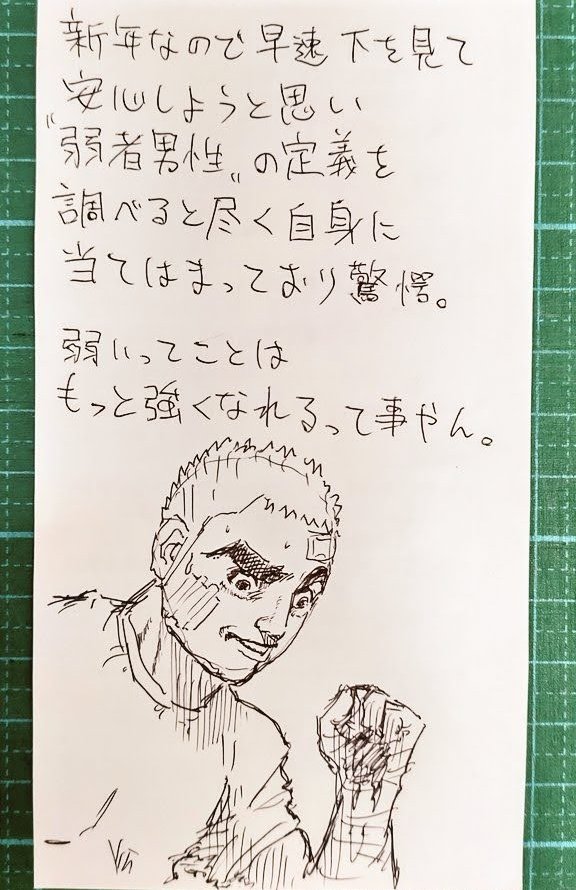 新年なので早速下を見て
安心しようと思い
"弱者男性"の定義を
調べると尽く自身に
当てはまっており驚愕。
弱いってことは
もっと強くなれるって事やん。